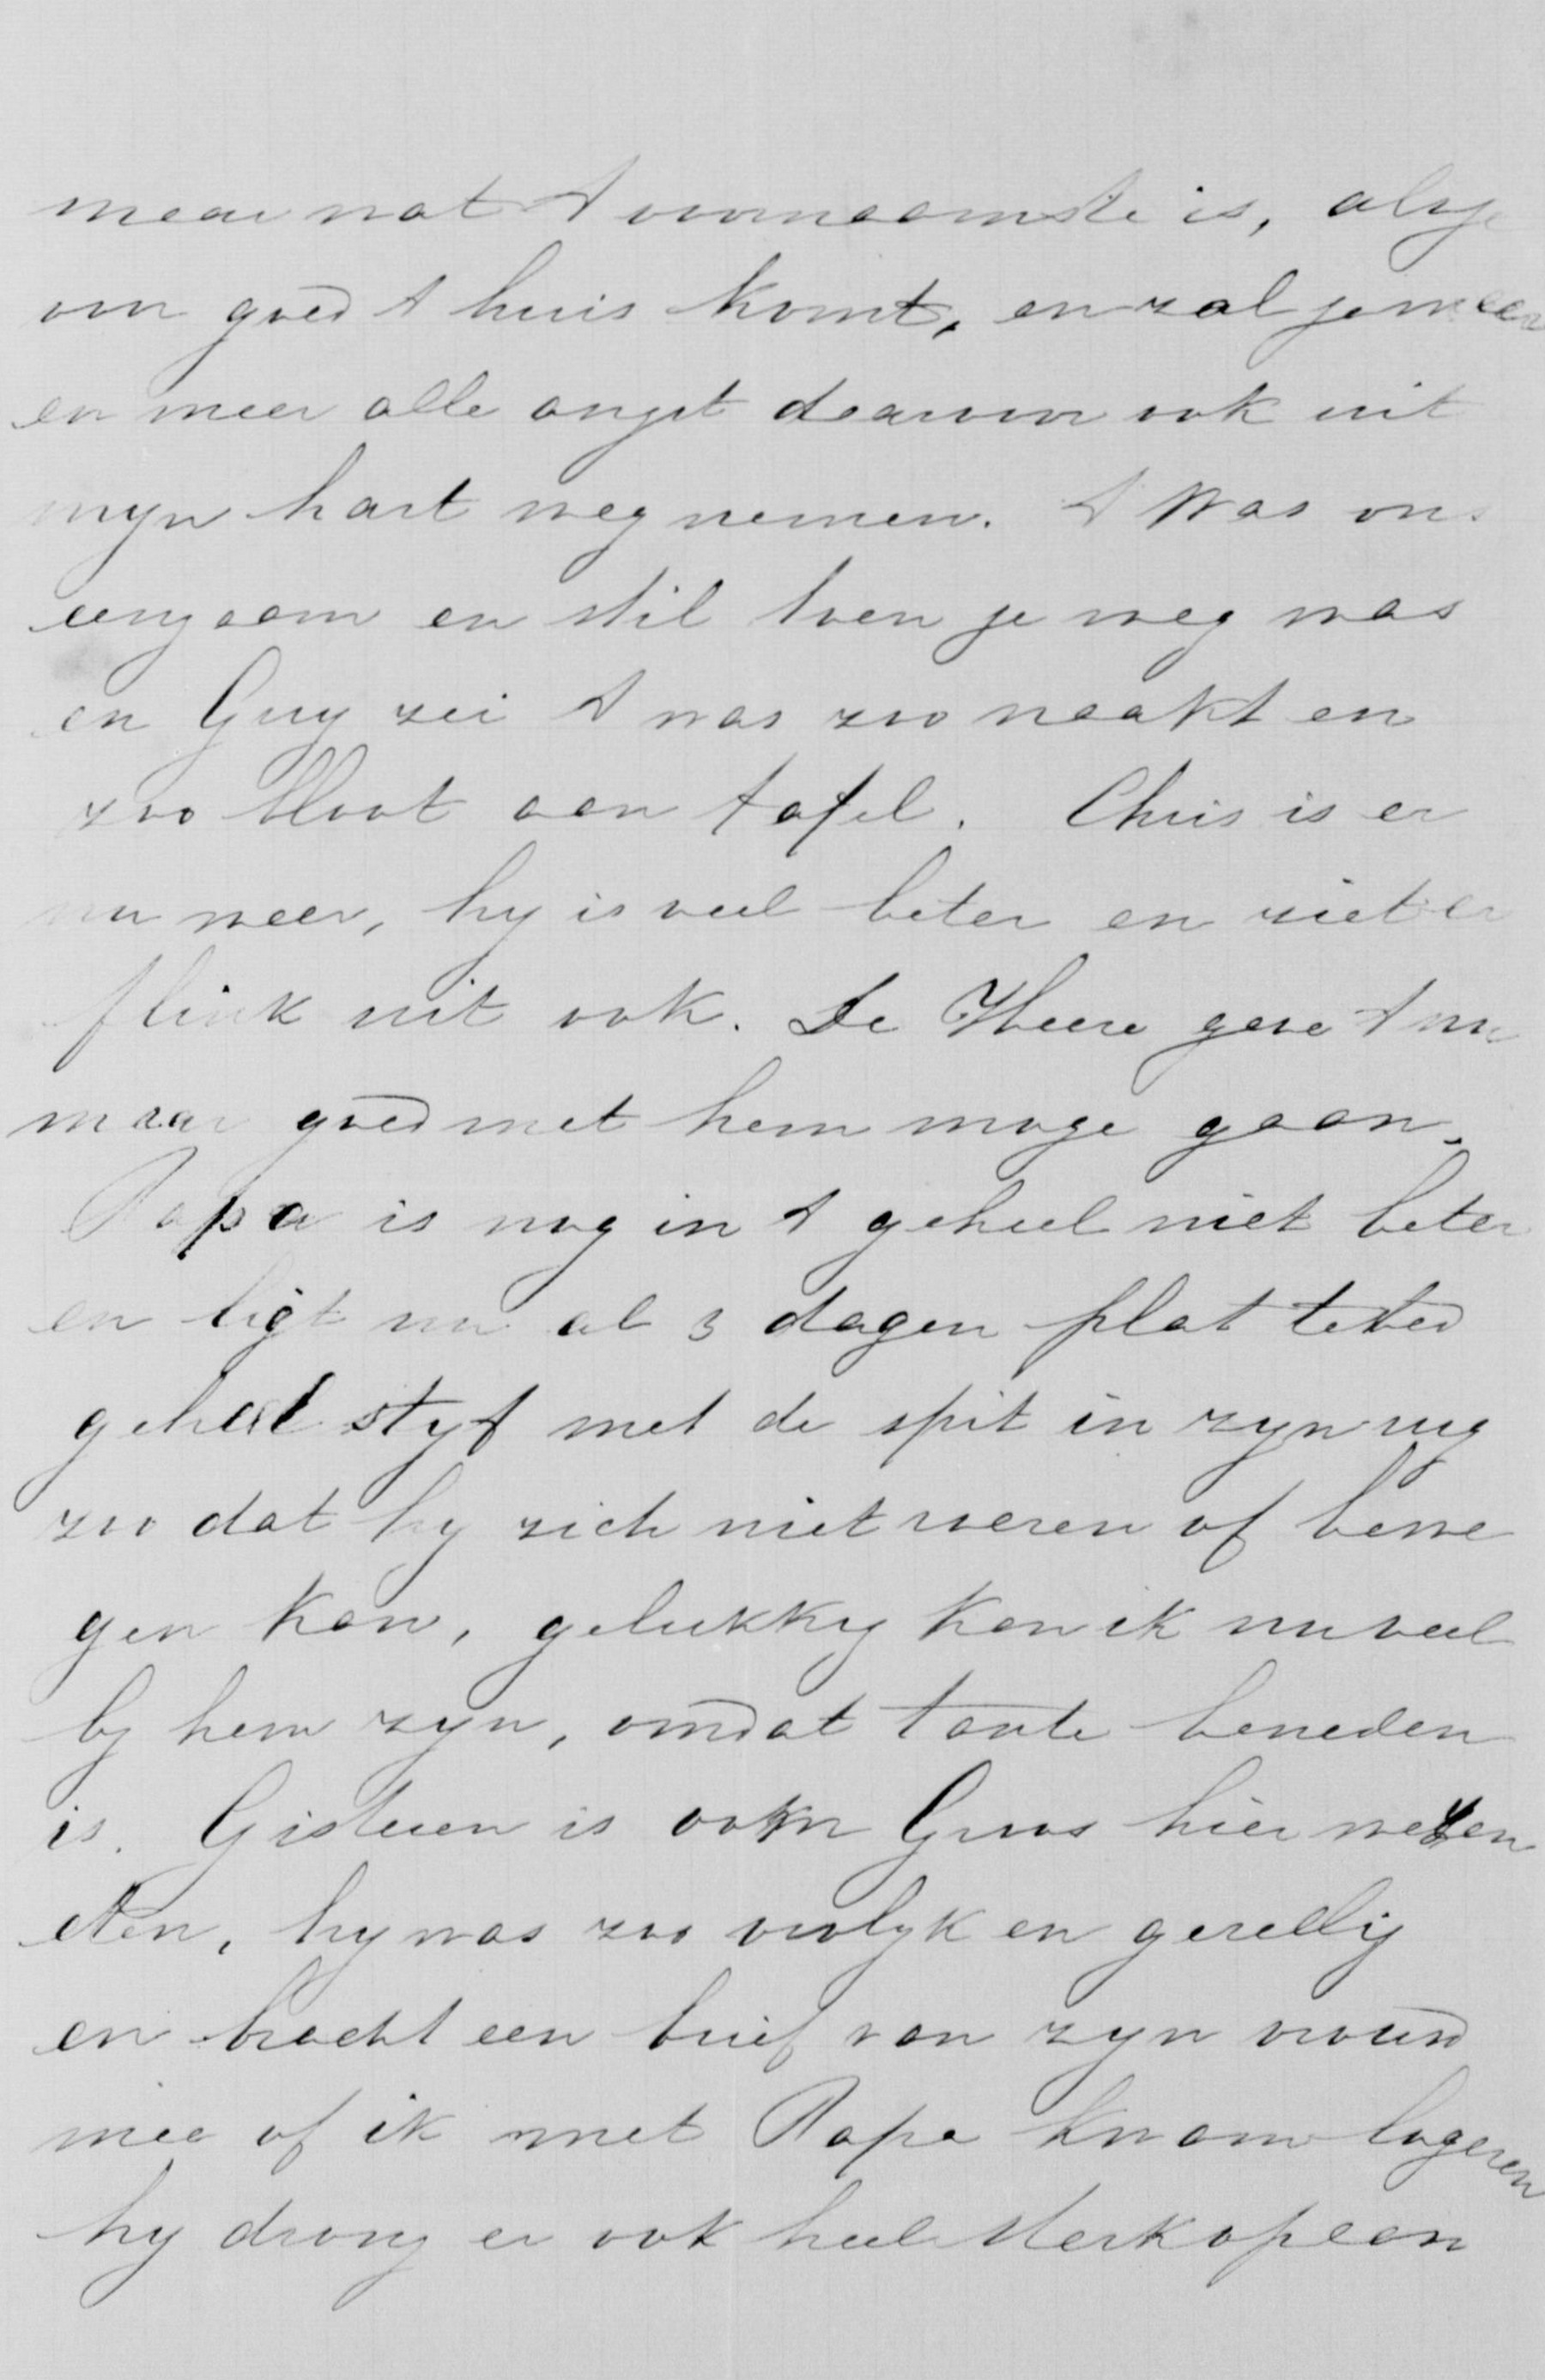 maar wat t voornaamste is, als je
om goed t huis komt, en zal je meer
en meer alle angst daarvoor ook uit
myn hart weg nemen. t Was ons
eenzaam en stil toen je weg was
en Guy zei t was zoo naakt en
zoo bloot aan tafel. Chris is er
nu weer, hy is veel beter en ziet er
flink uit ook. De Heere geve t nu
maar goed met hem moge gaan.
Papa is nog in t geheel niet beter
en ligt nu al 3 dagen plat te bed
geheel styf met de spit in zyn rug
zoo dat hy zich niet roeren of bewe
gen kan, gelukkig kan ik nu veel
by hem zyn, omdat tante beneden
is. Gisteren is oom Guus hier wezen
eten, hy was zoo vrolyk en gezellig
en bracht een brief van zyn vrouw
mee of ik met Papa kwam logeren
hy drong er ook heel sterk op aan